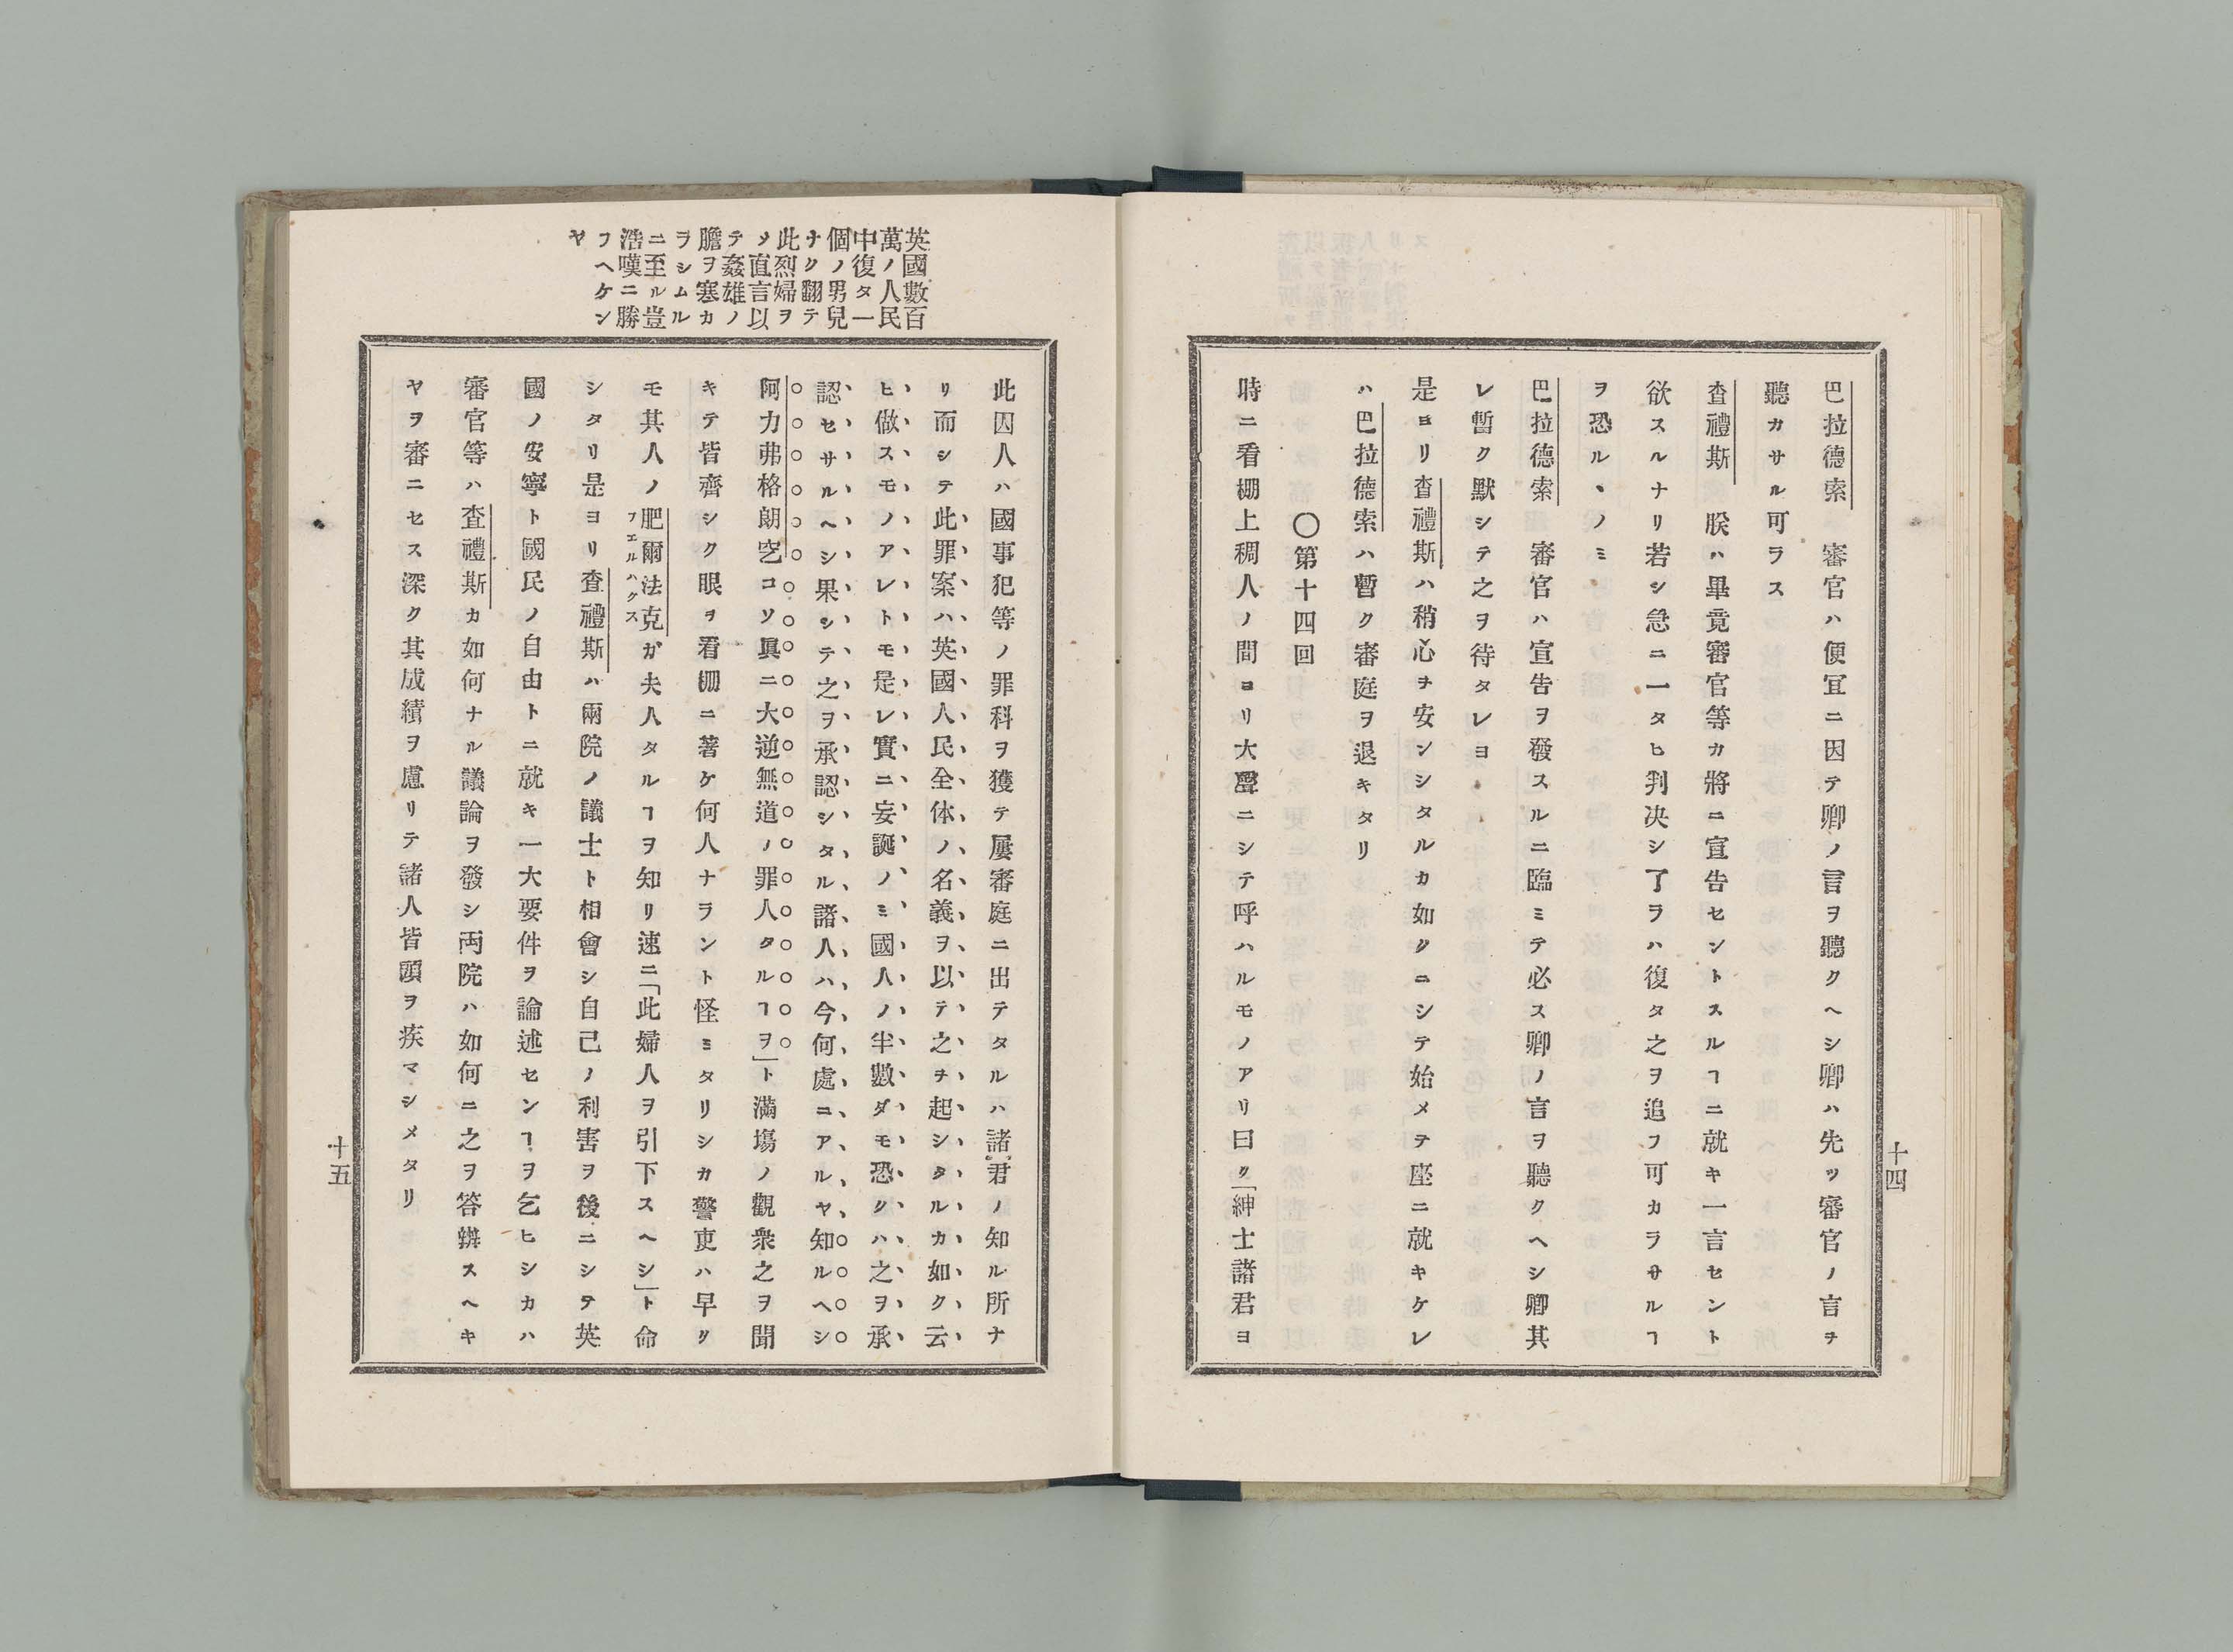 巴拉德索　審官ハ便冝ニ因テ卿ノ言ヲ聽クヘシ卿ハ先ツ審官ノ言ヲ
聽カサル可ラス
査禮斯　朕ハ畢竟審官等カ將ニ宣告セントスルヿニ就キ一言セント
欲スルナリ若シ急ニ一タヒ判决シ了ラハ復タ之ヲ追フ可カラサルヿ
ヲ恐ルヽノミ
巴拉德索　審官ハ宣告ヲ發スルニ臨ミテ必ス卿ノ言ヲ聽クヘシ卿其
レ暫ク默シテ之ヲ待タレヨ
是ヨリ査禮斯ハ稍心ヲ安ンシタルカ如クニシテ始メテ座ニ就キケレ
ハ巴拉德索ハ暫ク審庭ヲ退キタリ
〇第十四回
時ニ看棚上稠人ノ間ヨリ大聲ニシテ呼ハルモノアリ曰ク「紳士諸君ヨ
十四
英國數百
萬ノ人民
中復タ一
個ノ男兒
ナク翻テ
此烈婦ヲ
〆直言以
テ姦雄ノ
膽ヲ塞カ
ラシムル
ニ至ル豈
浩嘆ニ勝
フヘケン
ヤ
此囚人ハ國事犯等ノ罪科ヲ獲テ屢審庭ニ出テタルハ諸君ノ知ル所ナ
リ而シテ此罪案ハ英國人民全体ノ名義ヲ以テ之ヲ起シタルカ如ク云
ヒ做スモノアレトモ是レ實ニ妄誕ノミ國人ノ半數ダモ恐クハ之ヲ承
認セサルヘシ果シテ之ヲ承認シタル諸人ハ今何處ニアルヤ知ルヘシ
阿力弗格朗空コソ眞ニ大逆無道ノ罪人タルヿヲ」ト滿塲ノ觀衆之ヲ聞
キテ皆齊シク眼ヲ看棚ニ著ケ何人ナラント怪ミタリシカ警吏ハ早ク
モ其人ノ肥爾法克ガ夫人タルヿヲ知リ速ニ「此婦人ヲ引下スヘシ」ト命
フエルハクス
シタリ是ヨリ査禮斯ハ兩院ノ議士ト相會シ自己ノ利害ヲ後ニシテ英
國ノ安寧ト國民ノ自由トニ就キ一大要件ヲ論述センヿヲ乞ヒシカハ
審官等ハ査禮斯カ如何ナル議論ヲ發シ両院ハ如何ニ之ヲ答辨スヘキ
ヤヲ審ニセス深ク其成績ヲ慮リテ諸人皆頭ヲ疾マシメタリ
十五